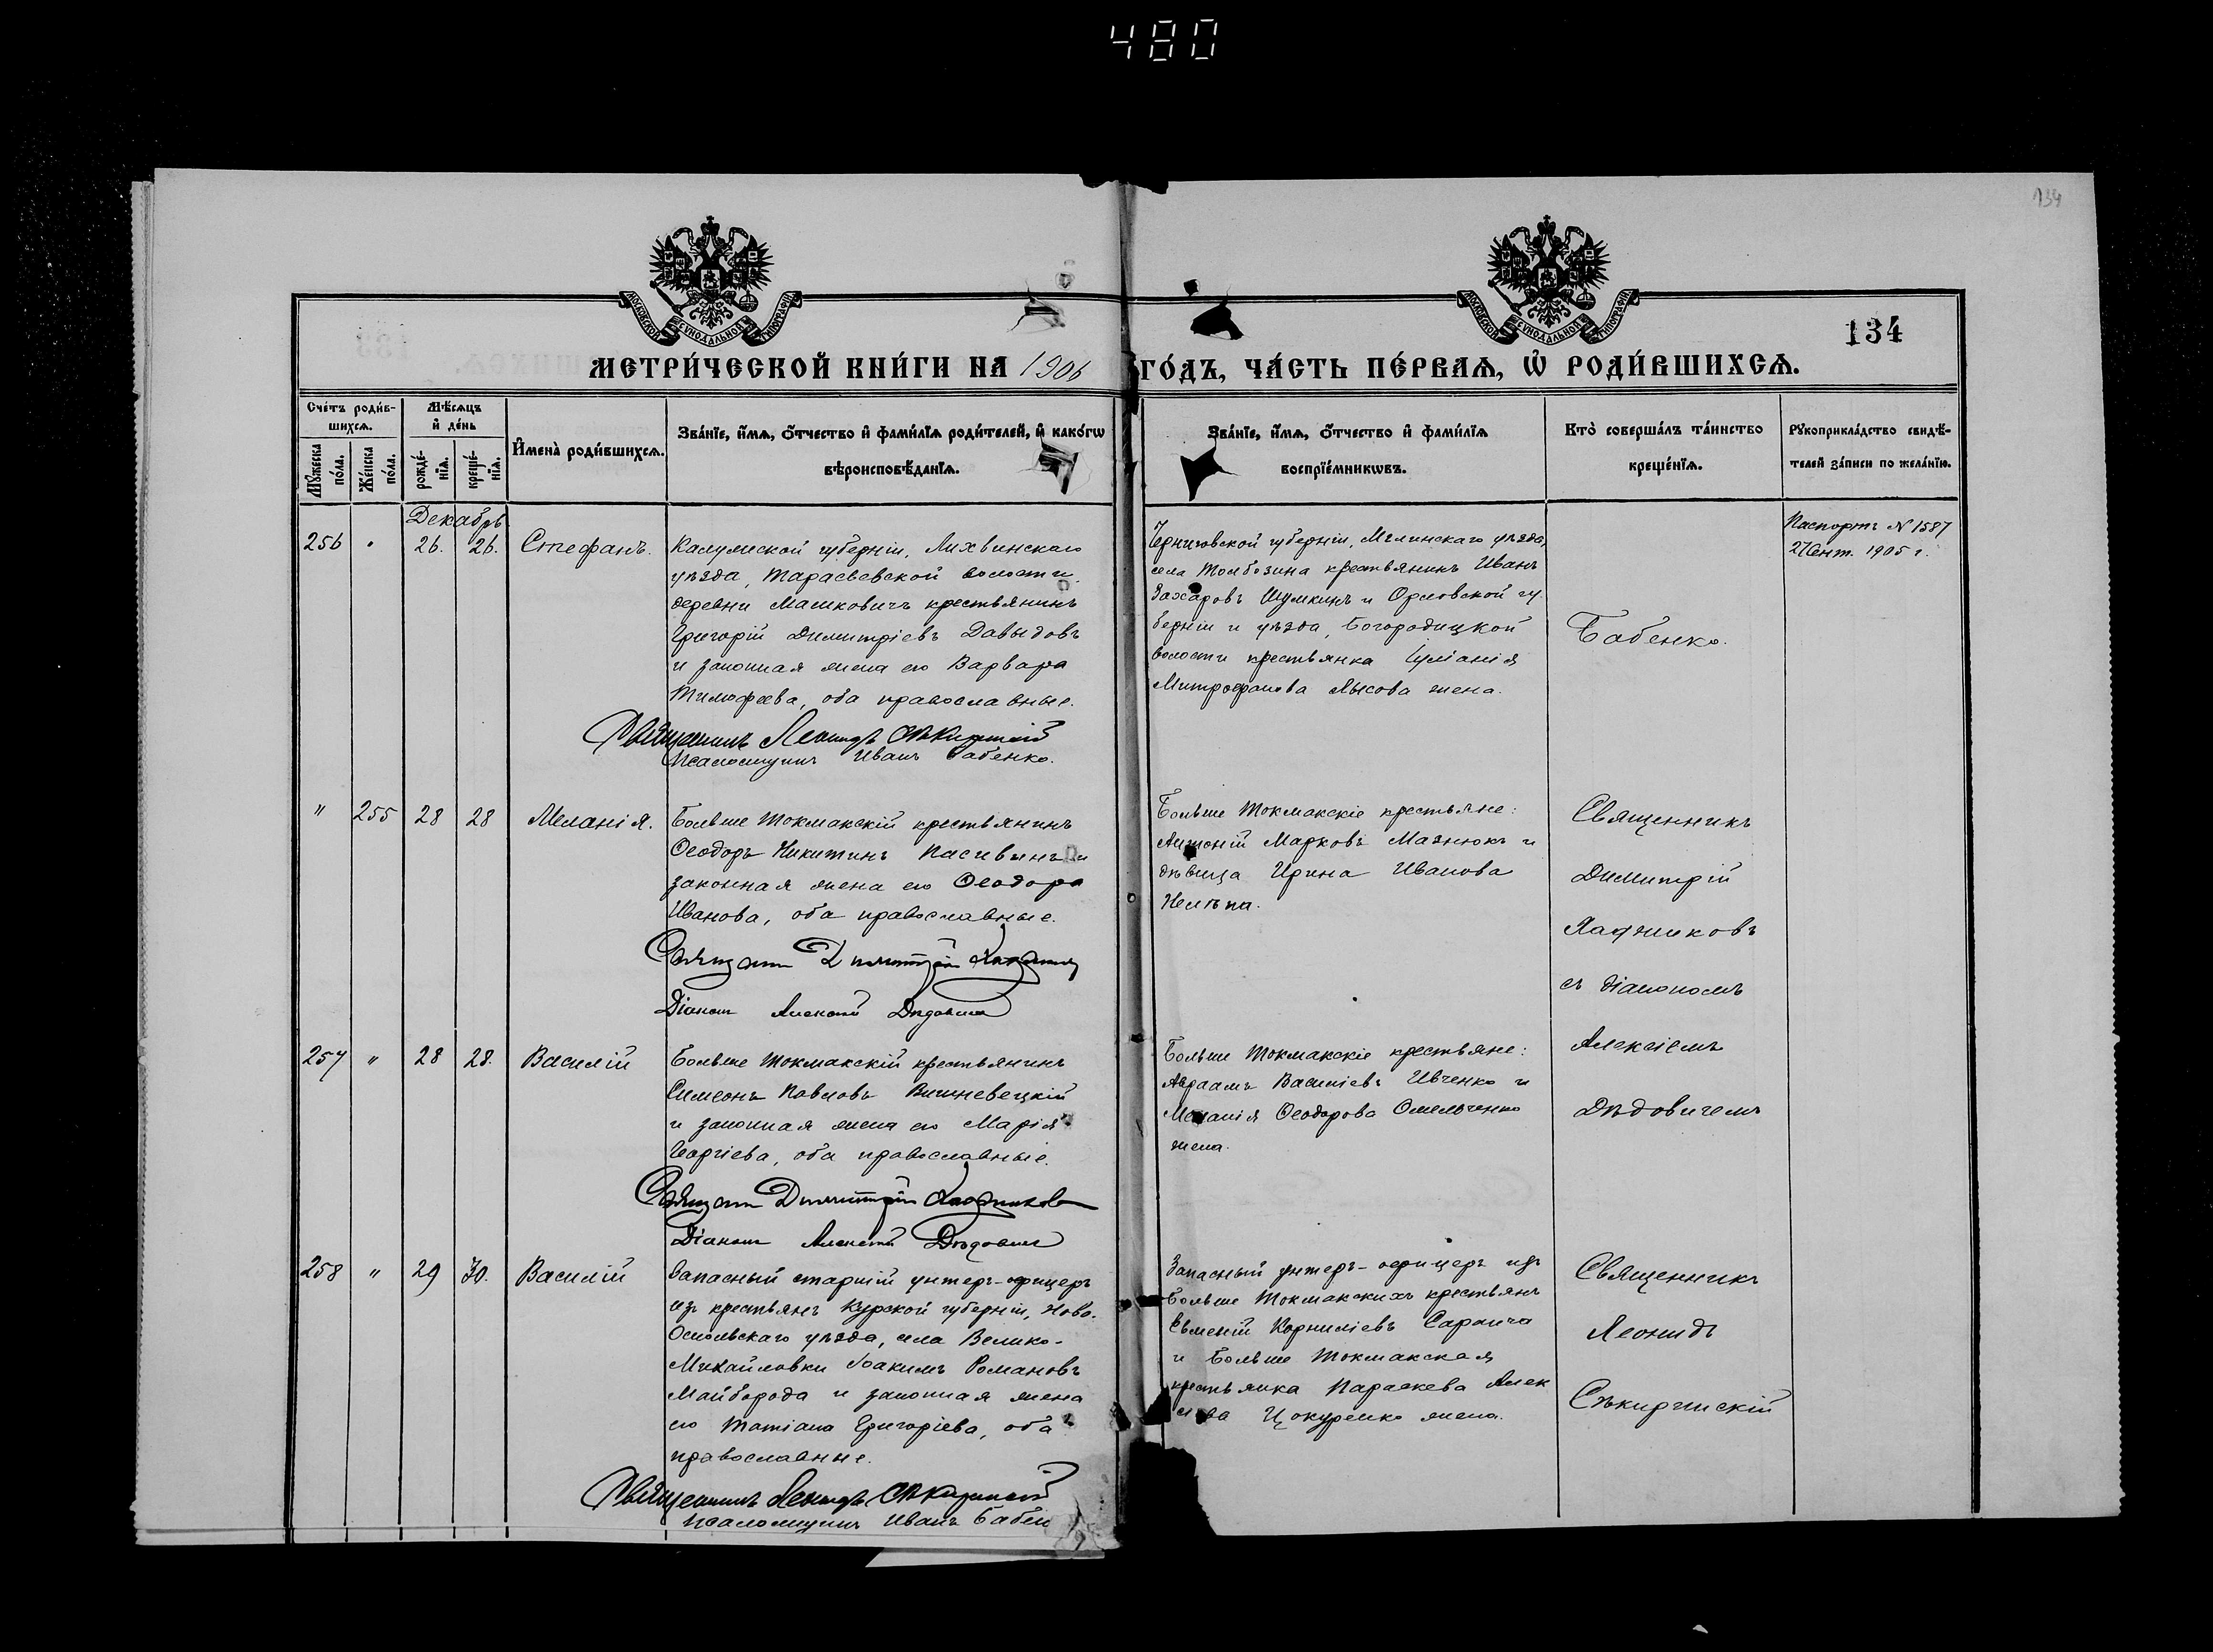 480
134
МОСКОВСКОЙ СѴНОДАЛЬНОЙ ТИПОГРАФІИ
МОСКОВСКОЙ СѴНОДАЛЬНОЙ ТИПОГРАФІИ
134
МЕТРИ́ЧЕСКОЙ КНИ́ГИ НА 1906 ГО́ДЪ, ЧА́СТЬ ПЕ́РВАѦ, Ѽ РОДИ́ВШИХСѦ.
Сче́тъ роди́в-
шихсѧ.
Мꙋ́жеска по́ла.
Же́нска по́ла.
Мѣ́сѧцъ
и҆ де́нь
рожде́-
нїѧ.
креще́-
нїѧ.
И҆мена̀ роди́вшихсѧ.
Зва́нїе, и҆́мѧ, ѻ҆́тчество и҆ фами́лїѧ роди́телей, и҆ како́гѡ
вѣроисповѣ́данїѧ.
Зва́нїе, и҆́мѧ, ѻ҆́тчество и҆ фами́лїѧ
воспрїе́мникѡвъ.
Кто̀ соверша́лъ та́инство
креще́нїѧ.
Рꙋкоприкла́дство свидѣ́-
телей за́писи по жела́нїю.
Декабрь
256 " 26. 26. Стефанъ.
Калужской губерніи, Лихвинскаго
уѣзда, Тарасьевской волости,
деревни Машковичъ крестьянинъ
Григорій Димитріевъ Давыдовъ
и законная жена его Варвара
Тимофеева, оба православные.
Священникъ Леонидъ Сѣкиржскій
Псаломщикъ Иванъ Бабенко.
Черниговской губерніи, Мглинскаго уѣзда,
села крестьянинъ Иванъ
Захаровъ Шумкинъ и Орловской гу-
берніи и уѣзда, Богородицкой
волости крестьянка Іуліанія
Митрофанова Лысова жена.
Бабенко.
Паспортъ N 1587
Сент. 1905 г.
" 255 28 28 Меланія.
Больше Токмакскій крестьянинъ
Ѳеодоръ Никитинъ и
законная жена его Ѳеодора
Иванова, оба православные.
Священникъ Димитрій
Діаконъ Алексій Дѣдовичъ
Больше Токмакскіе крестьяне:
Антоній Марковъ Мазнюкъ и
дѣвица Ирина Иванова
Нелѣпа.
Священникъ
Димитрій
съ діакономъ
Алексіемъ
Дѣдовичемъ
257 " 28 28. Василій
Больше Токмакскій крестьянинъ
Симеонъ Павловъ Вишневецкій
и законная жена его Марія
Георгіева, оба православные.
Священникъ Димитрій
Діаконъ Алексій Дѣдовичъ
Больше Токмакскіе крестьяне:
Авраамъ Василіевъ Ивченко и
Меланія Ѳеодорова Омельченко
жена.
258 " 29 30. Василій
Запасный старшій унтеръ-офицеръ
изъ крестьянъ Курской губерніи, Ново-
Оскольскаго уѣзда, села Велико-
Михайловки Іоакимъ Романовъ
Майборода и законная жена
его Татіана Григоріева, оба
православные.
Священникъ Леонидъ Сѣкиржскій
Псаломщикъ Иванъ Бабен
Запасный унтеръ-офицеръ изъ
Больше Токмакскихъ крестьянъ
Евменій Корниліевъ
и Больше Токмакская
крестьянка Параскева Алек
Цокуренко жена.
Священникъ
Леонидъ
Сѣкиржскій